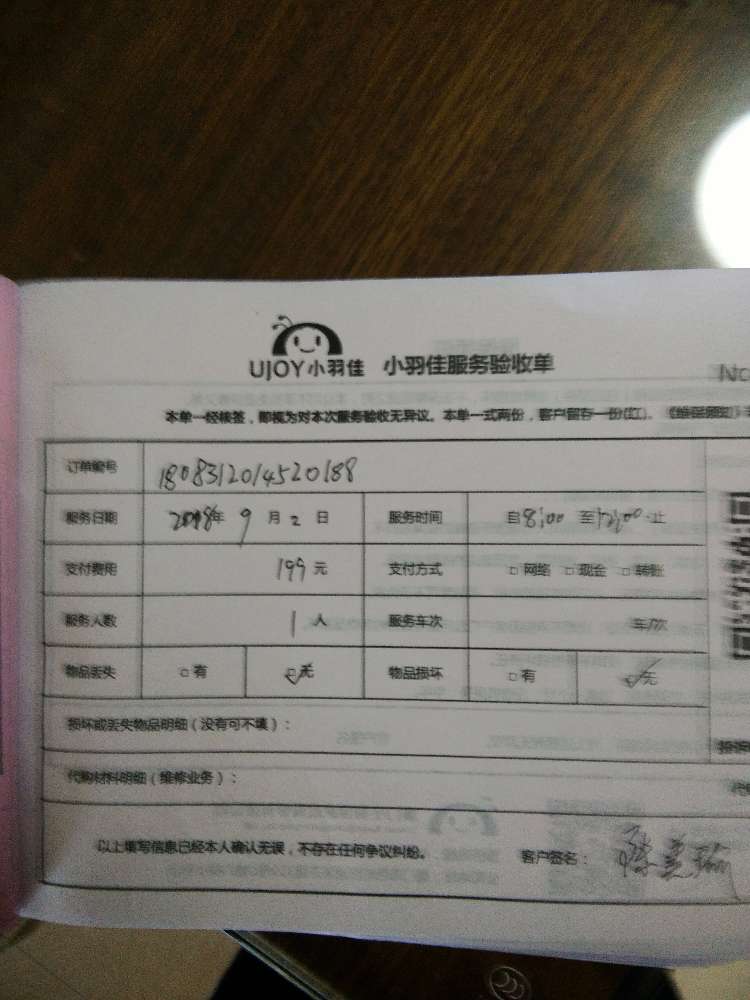 UJOY小羽佳 小羽佳服务验收单
No
本单一经核签，即视为对本次服务验收无异议。本单一式两份，客户留存一份(红)。
订单编号 1808312014520188
服务日期 2018年 9 月 2 日 服务时间 自8:00 至12:00 止
支付费用 199 元 支付方式 □ 网络 □ 现金 □ 转账
服务人数 1 人 服务车次 车/次
物品丢失 □ 有 ☑ 无 物品损坏 □ 有 ☑ 无
损坏或丢失物品明细（没有可不填）：
代购材料明细（维修业务）：
以上填写信息已经本人确认无误，不存在任何争议纠纷。 客户签名：